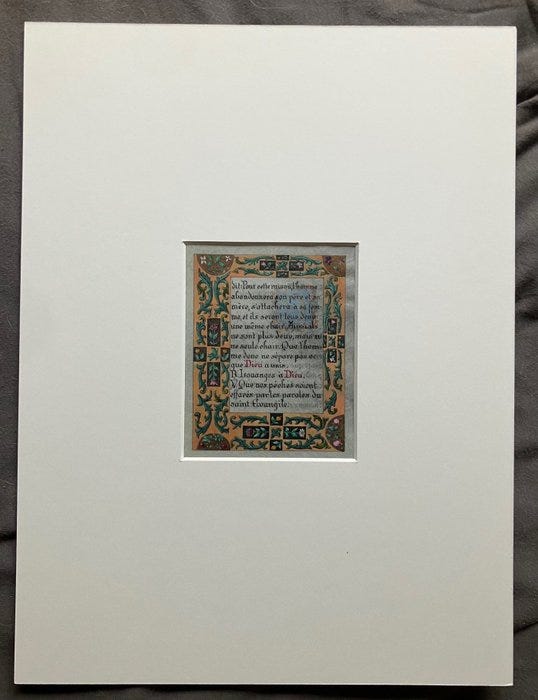 dit: Pour cette raison, l'homme
abandonnera son père et sa
mère, s'attachera à sa fem-
me, et ils seront tous deux
une même chair. Ainsi ils
ne sont plus deux, mais u-
ne seule chair. Que l'hom-
me donc ne sépare pas ce
que Dieu a unis.
R. Louanges à Dieu.
V. Que nos péchés soient
effacés par les paroles du
saint Évangile.